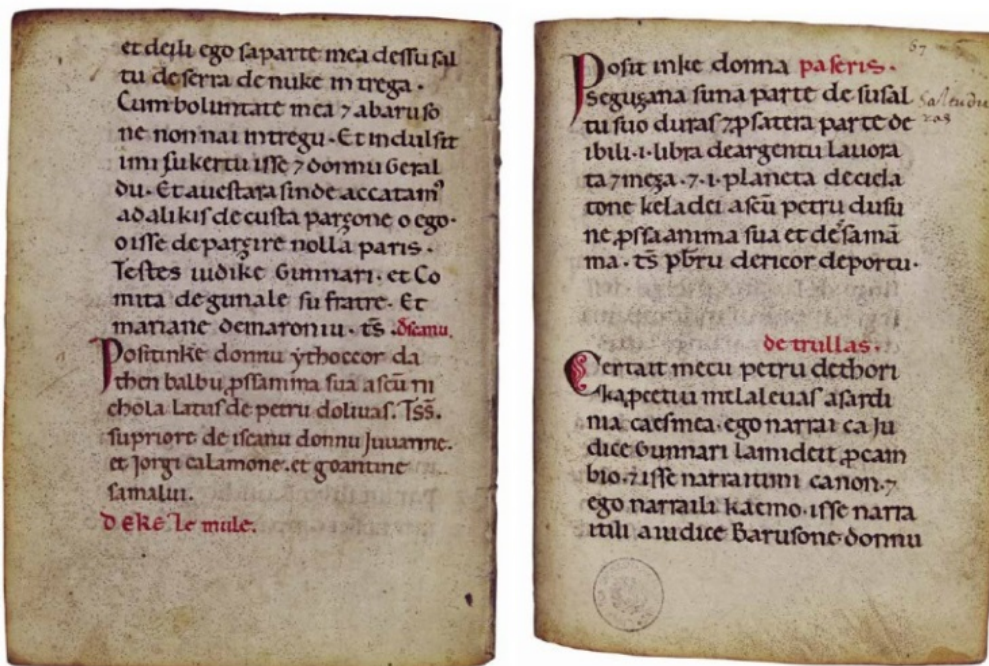 et deili ego saparte mea dessu sal
tu de serra de nuke in trega.
Cum boluntate mea 7 abaruso
ne non nai intregu. Et indulsit
imi su kertu isse 7 donnu Geral
du. Et auestara sinde accatam
ad alikis de custa parçone o ego.
o isse de parçire nolla paris.
Testes iudike Gunnari. et Co
mita de gunale su fratre. Et
mariane de maroniu. ts̄. d̄scanu.
Positinke donnu ythoccor da
then balbu, ꝓssanima sua a scū ni
chola latus de petru dolivas. Tss̄.
su priore de iscanu donnu Juvanne.
et Jorgi calamone. et goantine
samalui.
DEKE Le mule.
67
Posit inke donna paseris.
Segusana suna parte de su sal
tu suo duras 7ꝓ satera parte de
ibili. i. libra deargentu Lauora
ta 7 meça. 7. i. planeta de cicla
tone keladei a scū petru dusu
ne ꝓssa anima sua et de samā
ma. ts̄ pb̄ru dericor deportu.
de trullas.
Certait mecu petru dethori
ka, peetiu intlaleuas asardi
nia caes mea. ego narrai ca Ju
dice Gunnari lamideit ꝓcam
bio. 7 isse narraitimi ca non. 7
ego narraili kaemo. isse narra
itili a iudice Barusone donnu